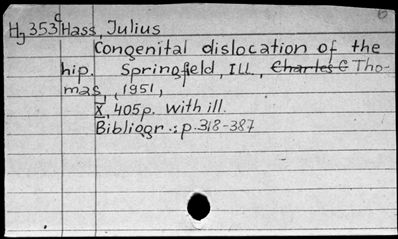 Hj 353c Hass, Julius
Congenital dislocation of the
hip. Springfield, Ill., Charles C Tho-
mas, 1951,
X, 405p. with ill.
Bibliogr.: p. 318-387